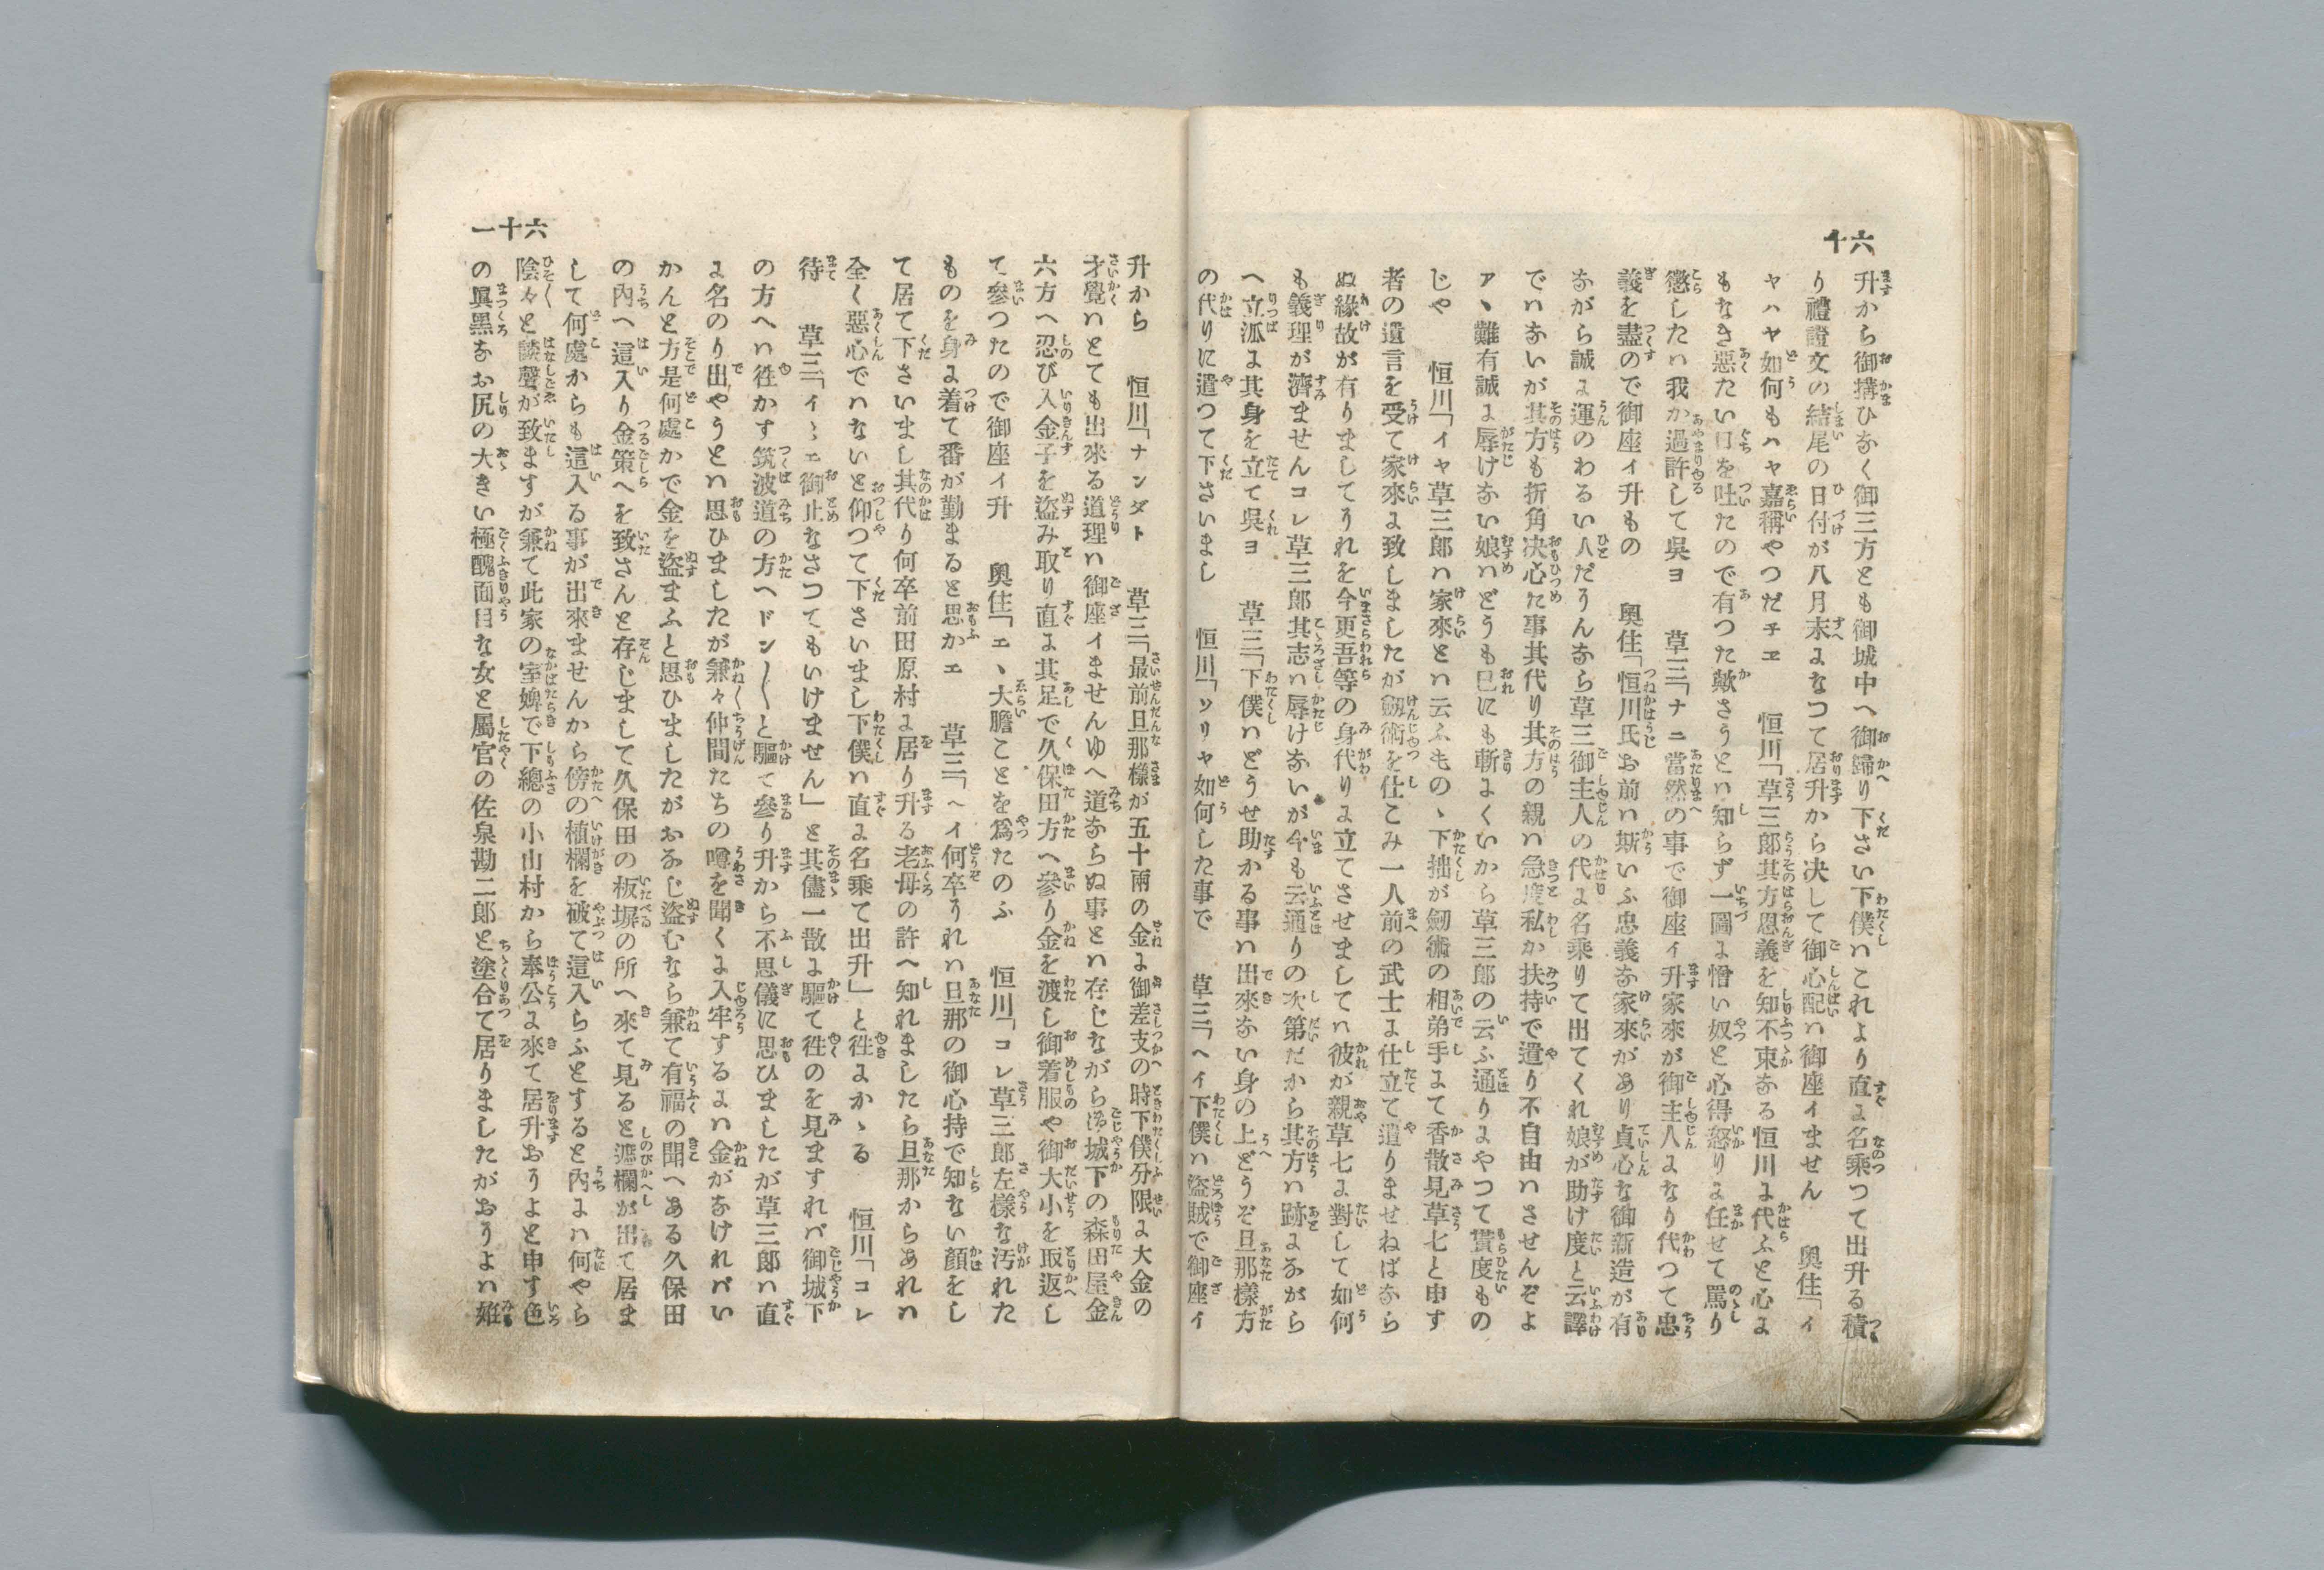 六十
升から御搆ひなく御三方とも御城中へ御歸り下さい下僕ハこれより直よ名乘つて出升る積
り禮證文の結尾の日付が八月末よなつて居升から决して御心配ハ御座イません　奥住「イ
ヤハヤ如何もハヤ嘉稱やつだチヱ　恒川「草三郎其方恩義を知不束なる恒川よ代ふと心よ
もなき惡たい口を吐たので有つた歟さうとハ知らず一圖よ憎い奴と心得怒りよ任せて罵り
懲したハ我か過許して呉ヨ　草三「ナニ當然の事で御座イ升家來が御主人よなり代つて忠
義を盡ので御座イ升もの　奥住「恒川氏お前ハ斯いふ忠義な家來があり貞心な御新造が有
ながら誠よ運のわるい人だうんなら草三御主人の代よ名乘りて出てくれ娘が助け度と云譯
でハないが其方も折角决心た事其代り其方の親ハ急度私か扶持で遣り不自由ハさせんぞよ
アヽ難有誠よ辱けない娘ハどうも已にも斬よくいから草三郎の云ふ通りよやつて貰度もの
じや　恒川「イヤ草三郎ハ家來とハ云ふものヽ下拙が劔術の相弟手よて香散見草七と申す
者の遺言を受て家來よ致しましたが劔術を仕こみ一人前の武士よ仕立て遣りませねばなら
ぬ緣故が有りましてうれを今更吾等の身代りよ立てさせましてハ彼が親草七よ對して如何
も義理が濟ませんコレ草三郎其志ハ辱けないが今も云通りの次第だから其方ハ跡よるがら
へ立派よ其身を立て呉ヨ　草三「下僕ハどうせ助かる事ハ出來ない身の上どうぞ旦那樣方
の代りに遣つて下さいまし　恒川「ソリヤ如何した事で　草三「ヘイ下僕ハ盜賊で御座イ
六十一
升から　恒川「ナンダト　草三「最前旦那樣が五十兩の金よ御差支の時下僕分限よ大金の
才覺ハとても出來る道理ハ御座イませんゆへ道ならぬ事とハ存じながら御城下の森田屋金
六方へ忍び入金子を盜み取り直よ其足で久保田方へ參り金を渡し御着服や御大小を取返し
て參つたので御座イ升　奥住「エヽ大膽ことを爲たのふ　恒川「コレ草三郎左樣な汚れた
ものを身よ着て番が勤まると思かエ　草三「ヘイ何卒うれハ旦那の御心持で知ない顏をし
て居て下さいまし其代り何卒前田原村よ居り升る老母の許へ知れましたら旦那からあれハ
全く惡心でハないと仰つて下さいまし下僕ハ直よ名乘て出升」と徃よかヽる　恒川「コレ
待　草三「イヽエ御止なさつてもいけません」と其儘一散よ驅て徃のを見ますれバ御城下
の方へハ徃かす筑波道の方ヘドン〱と驅て參り升から不思儀に思ひましたが草三郎ハ直
よ名のり出やうとハ思ひましたが兼々仲間たちの噂を聞くよ入牢するよハ金がなけれバい
かんと方是何處かで金を盜まふと思ひましたがおるじ盜むなら兼て有福の聞へある久保田
の內へ這入り金策へを致さんと存じまして久保田の板塀の所へ來て見ると遮欄が出て居ま
して何處からも這入る事が出來ませんから傍の植欄を破て這入らふとすると內よハ何やら
陰々と談聲が致ますが兼て此家の室婢で下總の小山村から奉公よ來て居升おうよと申す色
の眞黑なお尻の大きい極醜面目な女と屬官の佐泉勘二郎と塗合て居りましたがおうよハ姙